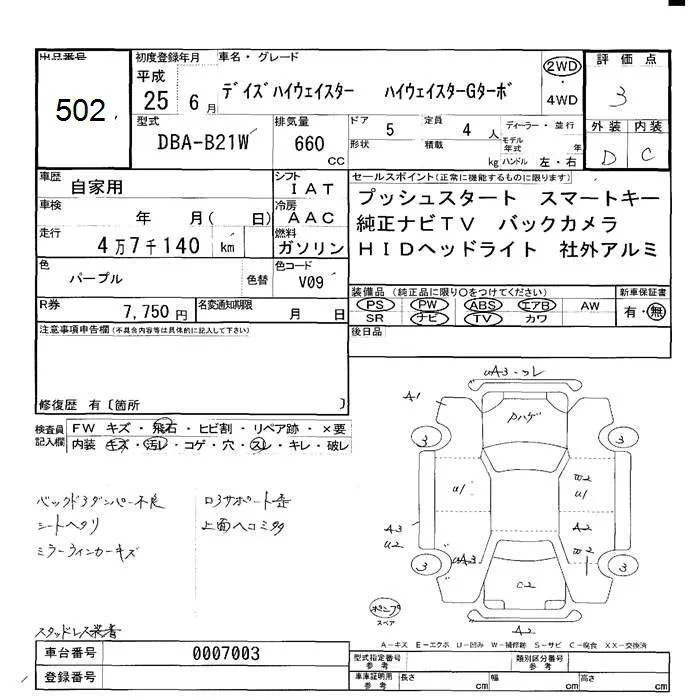 出品番号
502
初度登録年月
平成
25 6 月
車名・グレード
デイズハイウェイスター ハイウェイスターGターボ
2WD
・
4WD
評価点
3
型式
DBA-B21W
排気量
660
CC
ドア
5
定員
4 人
形状
積載
kg
ディーラー・並行
モデル年式
年
ハンドル 左・右
外装 内装
D C
車歴
自家用
シフト
IAT
車検
年 月( 日)
冷房
AAC
走行
4万7千140 km
燃料
ガソリン
色
パープル
色替
色コード
V09
R券
7,750円
名変通知期限
月 日
セールスポイント(正常に機能するものに限ります)
プッシュスタート スマートキー
純正ナビTV バックカメラ
HIDヘッドライト 社外アルミ
装備品(純正品に限り○をつけてください)
PS PW ABS エアB AW
SR ナビ TV カワ
新車保証書
有・無
後日品
注意事項申告欄(不具合内容等は具体的に記入して下さい)
修復歴 有〔箇所 〕
検査員
記入欄
FW キズ・飛石・ヒビ割・リペア跡・×要
内装 キズ・汚レ・コゲ・穴・スレ・キレ・破レ
バックドアダンパー不良
シートヘタリ
ミラーウィンカーキズ
コアサポート歪
上面ヘコミ多
スタッドレス装着
UA3・ワレ
A1
Pハゲ
3
3
U1
W2
U1
A3
U2
A2
UA3
W2
3
3
C2
A2
ポンプ
スペア
A-キズ E-エクボ U-凹み W-補修跡 S-サビ C-腐食 XX-交換済
車台番号
0007003
登録番号
型式指定番号
参考
類別区分番号
参考
車庫証明用
参考
長さ cm
幅 cm
高さ cm